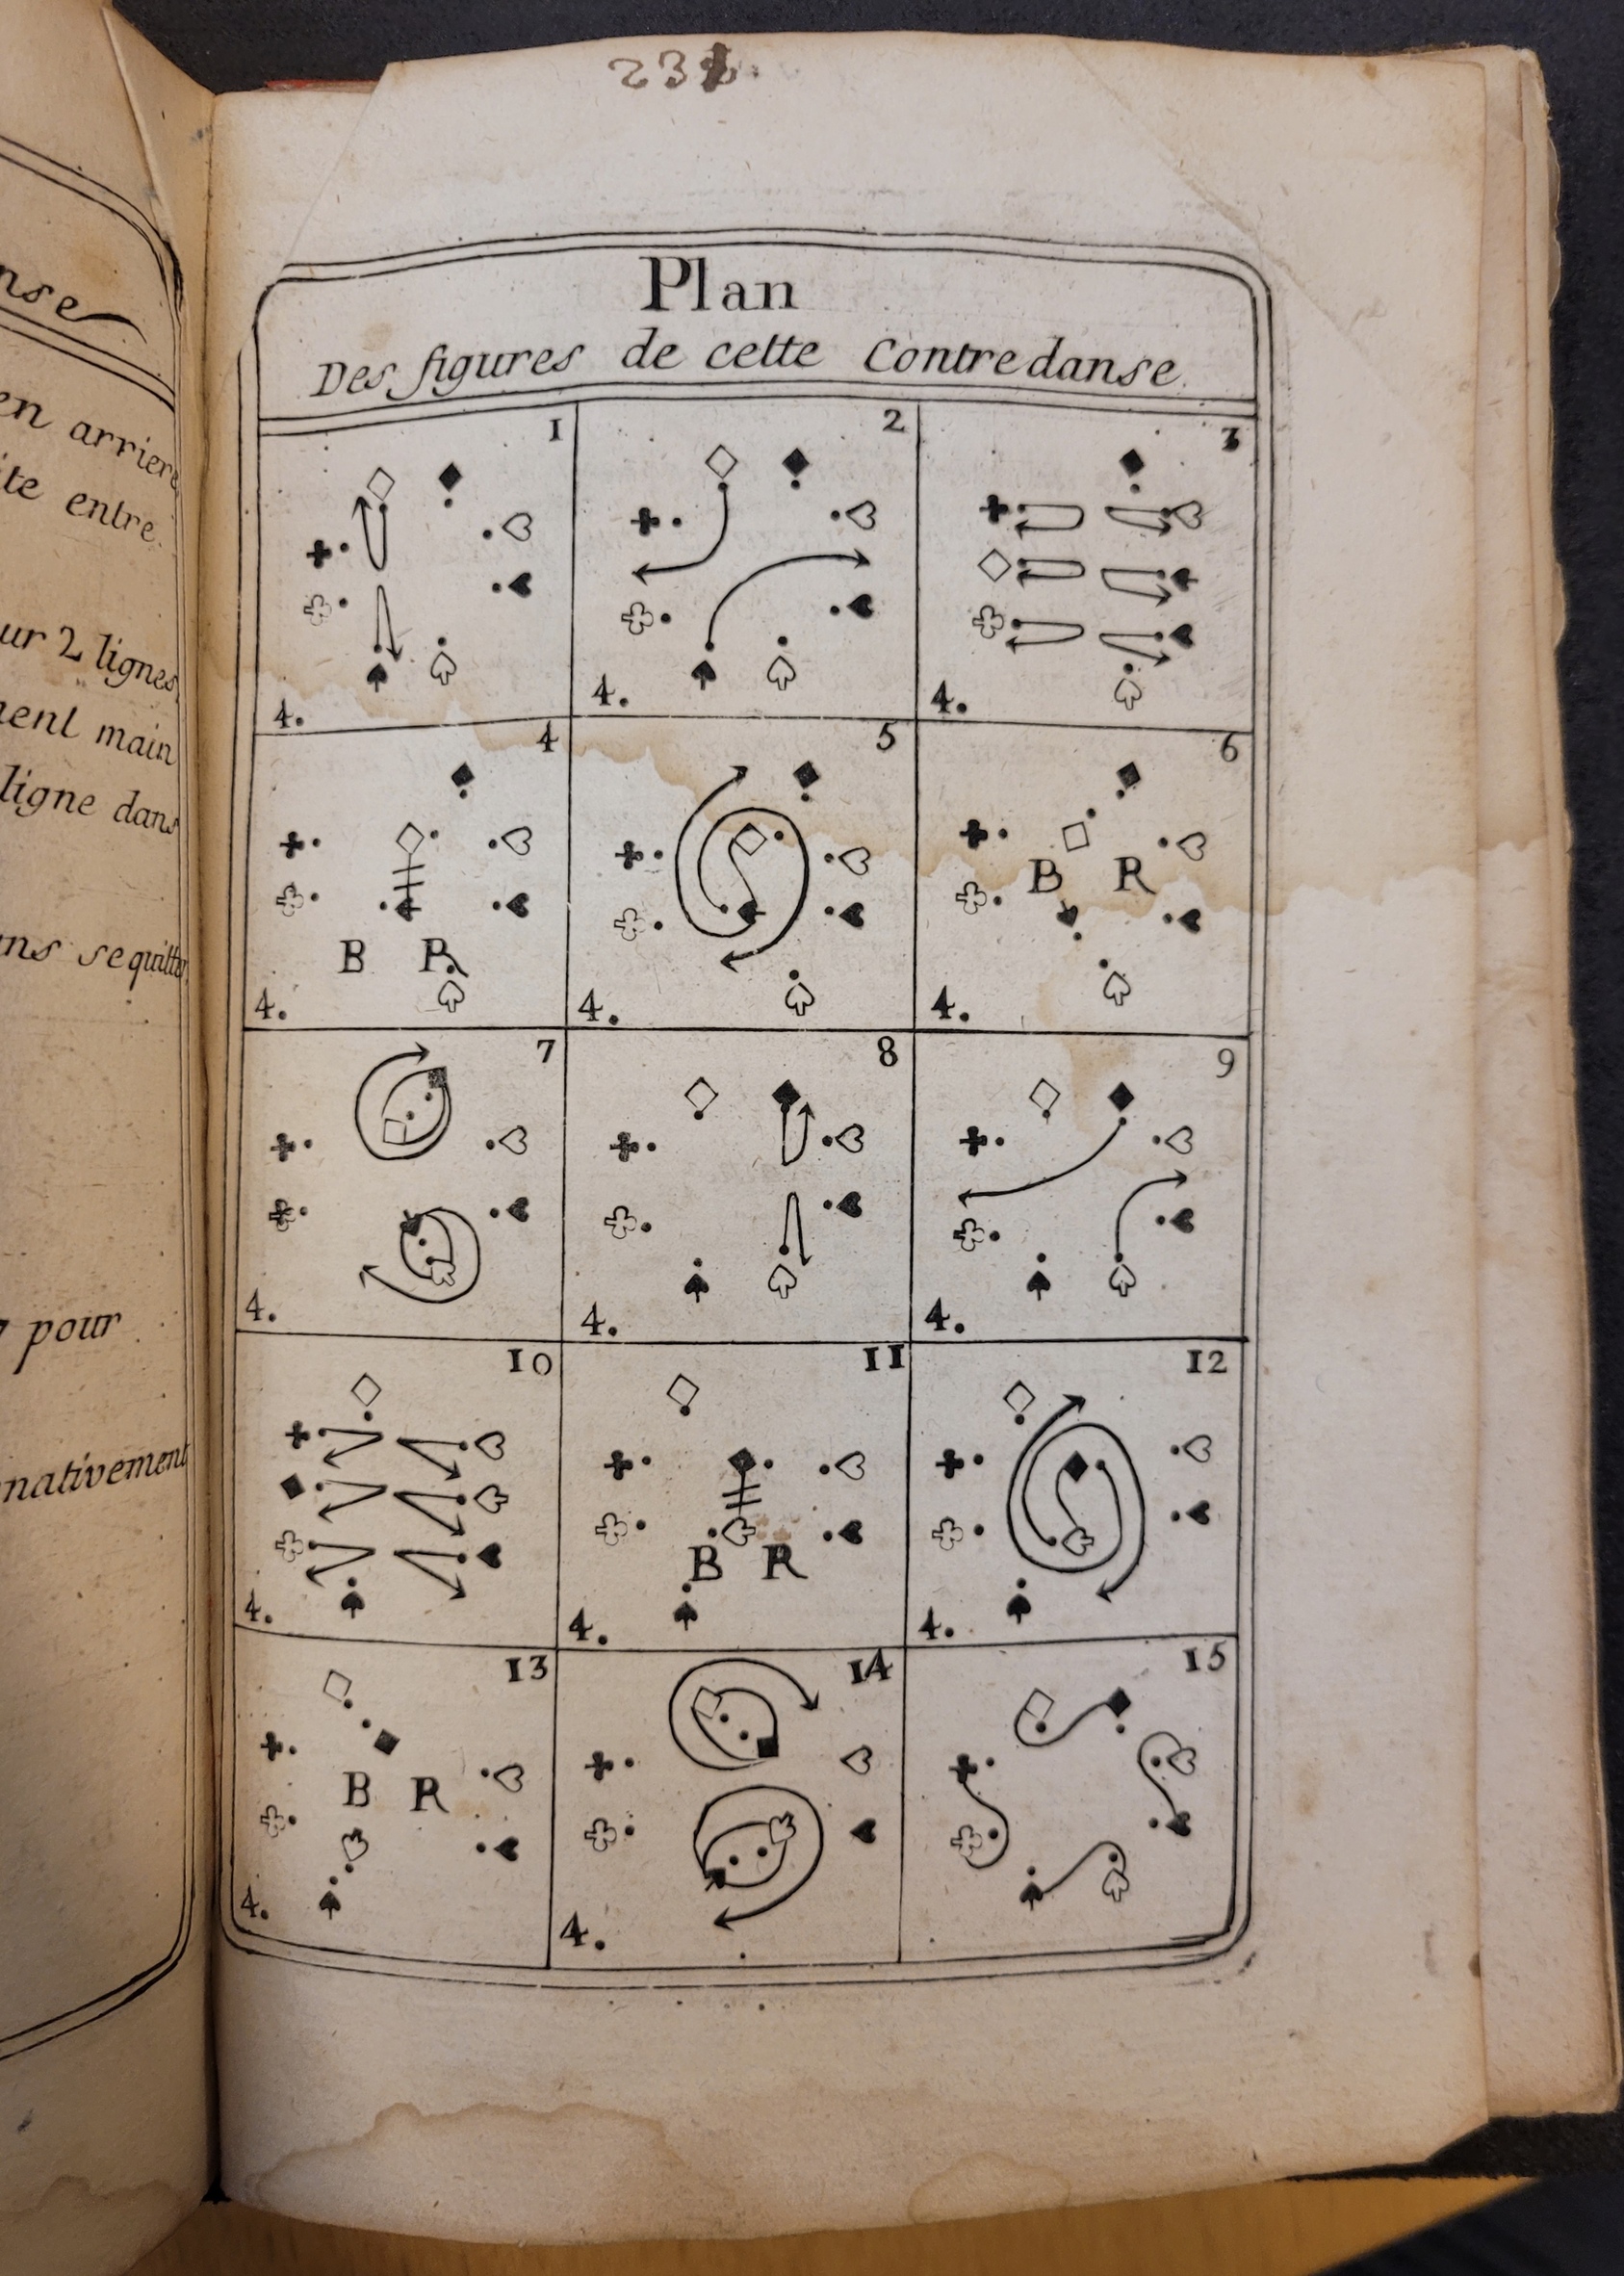 en arriere
ite entre.
ur 2 lignes
main
ligne dans
ns se quitter
pour
nativement
Plan
Des figures de cette Contredanse.
1
2
3
4.
4.
4.
4
5
6
B R
B R
4.
4.
4.
7
8
9
4.
4.
4.
10
11
12
B R
4.
4.
4.
13
14
15
B R
4.
4.